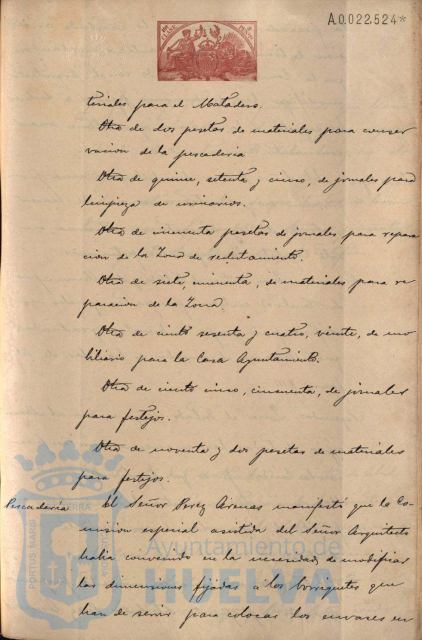 A.0.022.524*
teriales para el Matadero.
Otra de dos pesetas de materiales para conser
vacion de la pescaderia
Otra de quince, setenta y cinco, de jornales para
limpieza de urinarios.
Otra de cincuenta pesetas de jornales para repara
cion de la Zona de reclutamiento.
Otra de siete, cincuenta, de materiales para re
paracion de la Zona.
Otra de ciento sesenta y cuatro, veinte, de mo
biliario para la Casa Ayuntamiento.
Otra de ciento cinco, cincuenta, de jornales
para festejos.
Otra de noventa y dos pesetas de materiales
para festejos.
Pescaderia
El Señor Perez Arenas manifestó que la Co-
mision especial asistida del Señor Arquitecto
habia convenido en la necesidad de modificar
las dimensiones fijadas á los borriquetes que
han de servir para colocar los envases en
Ayuntamiento de
HUELVA
PORTUS MARIS